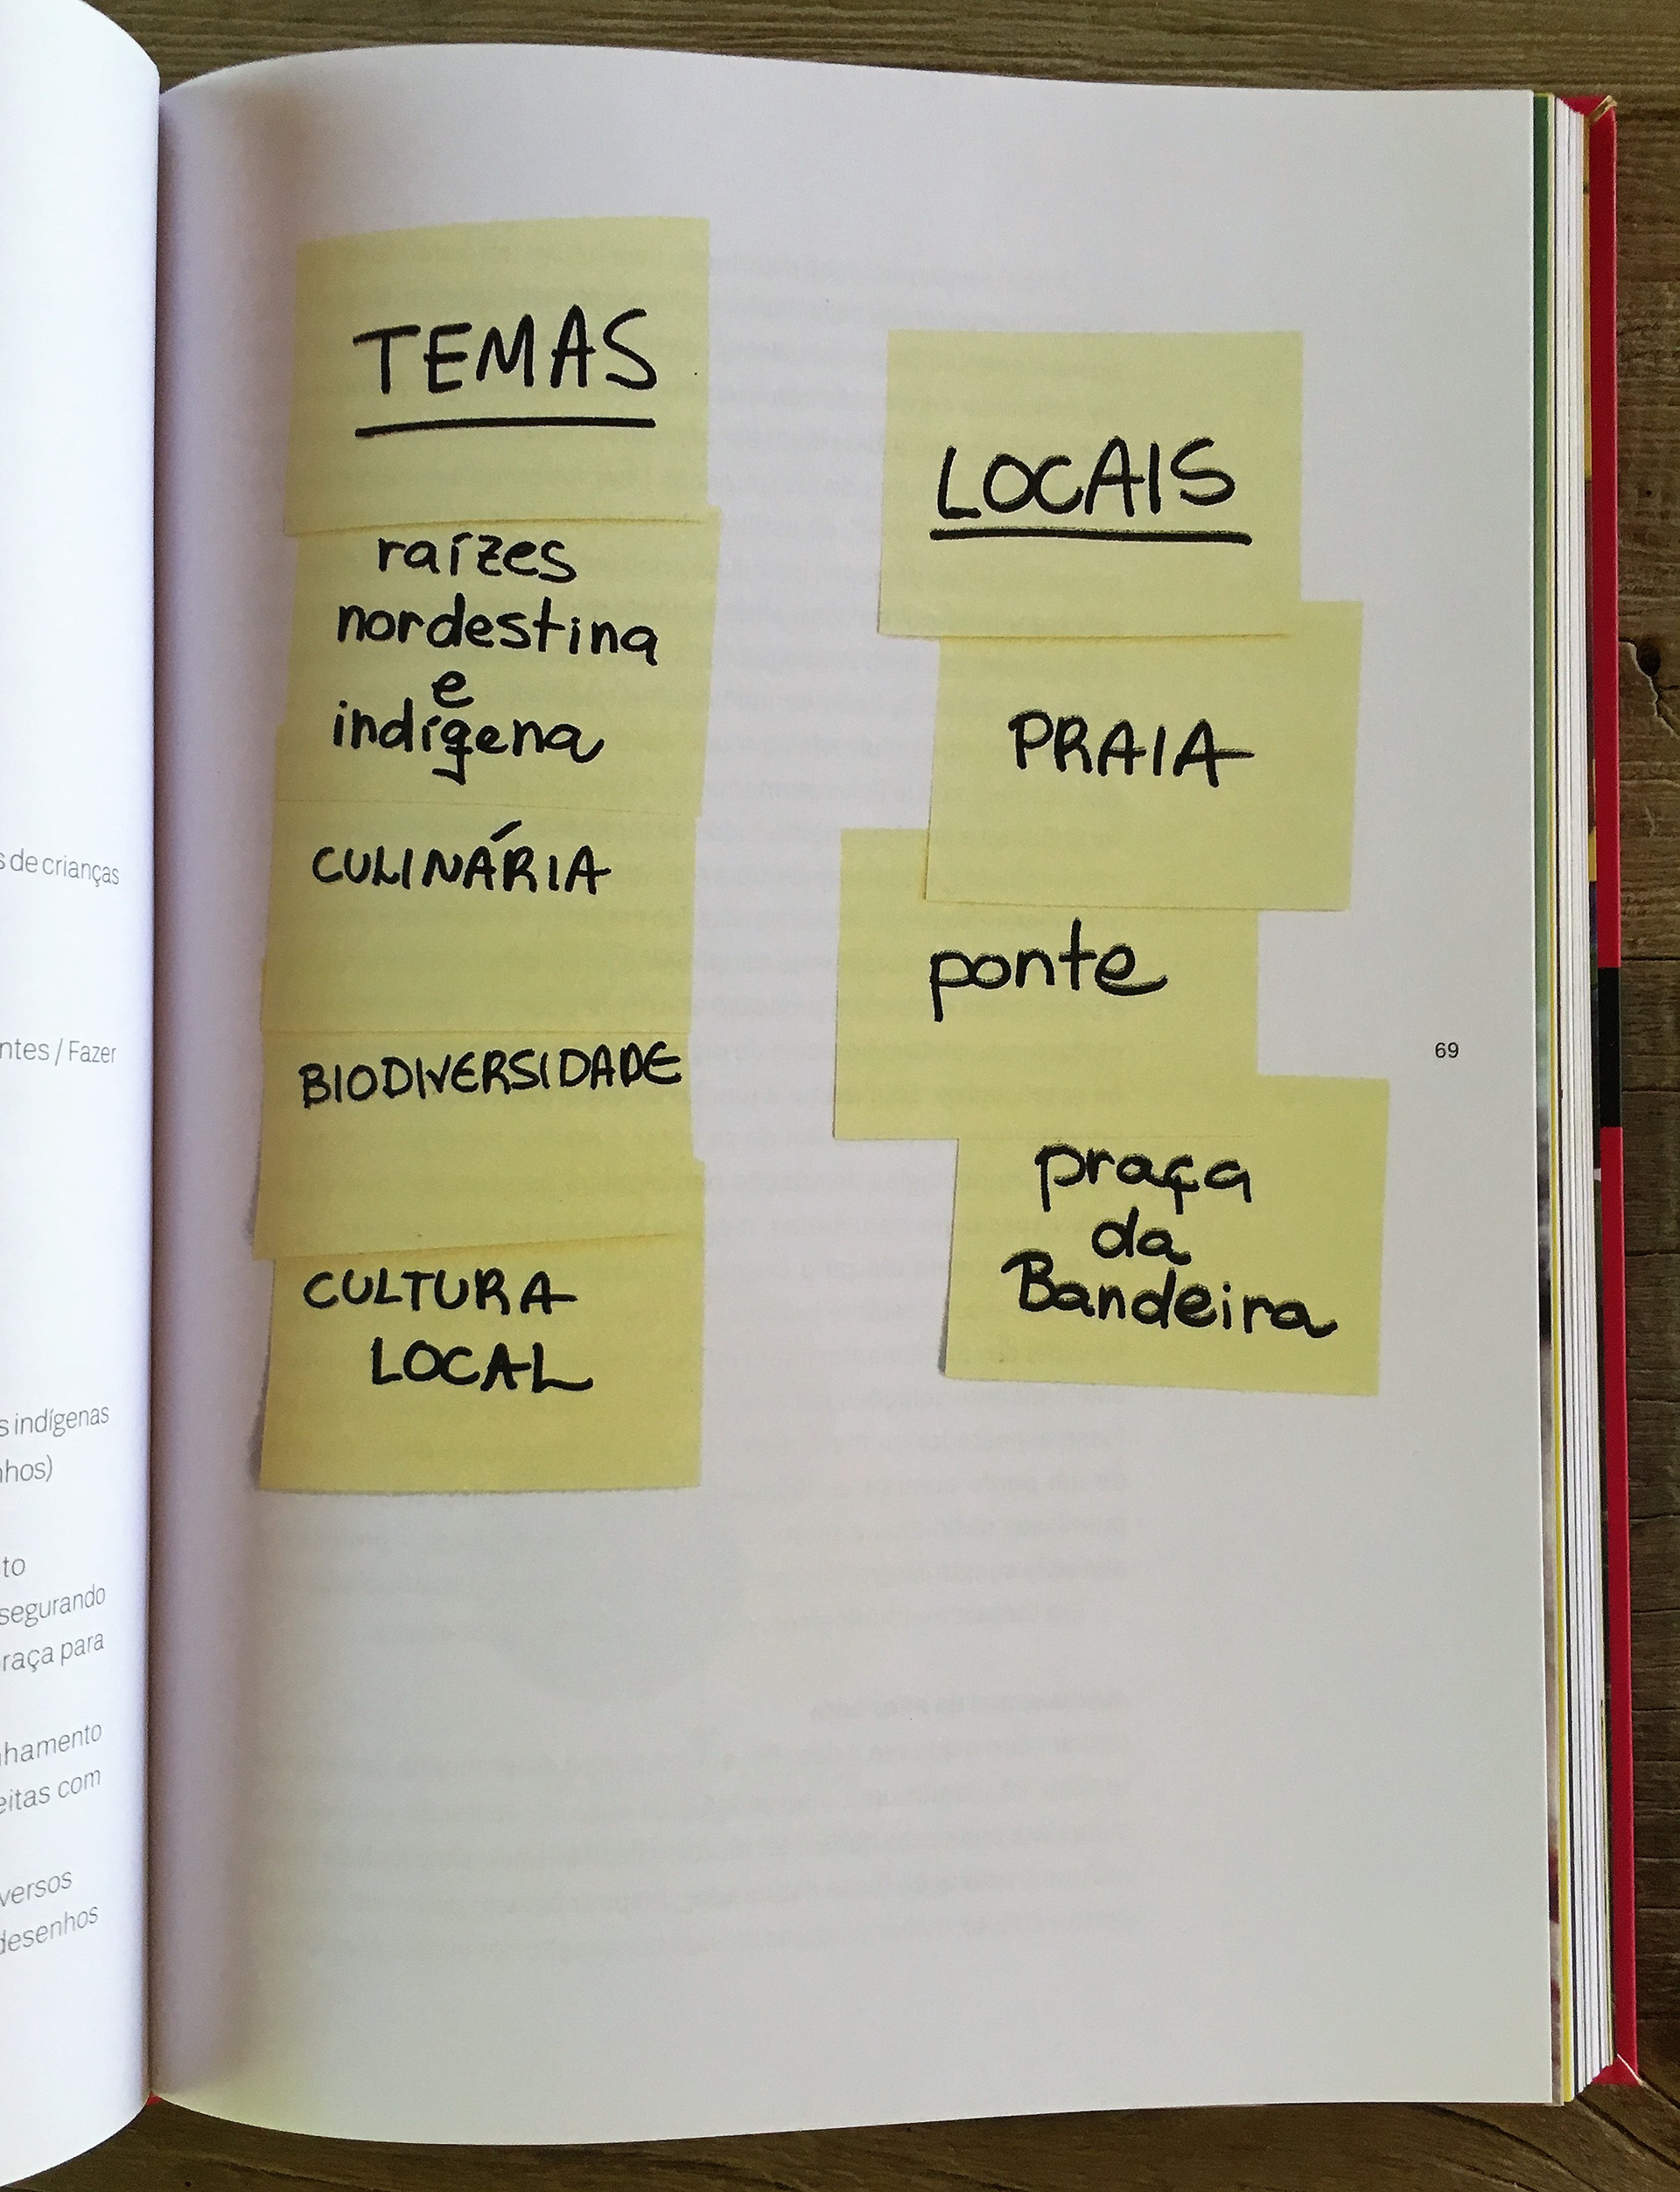 s de crianças
ntes / Fazer
s indígenas
nhos)
to
segurando
raça para
nhamento
eitas com
versos
desenhos
TEMAS
raízes
nordestina
e
indígena
CULINÁRIA
BIODIVERSIDADE
CULTURA
LOCAL
LOCAIS
PRAIA
ponte
praça
da
Bandeira
69